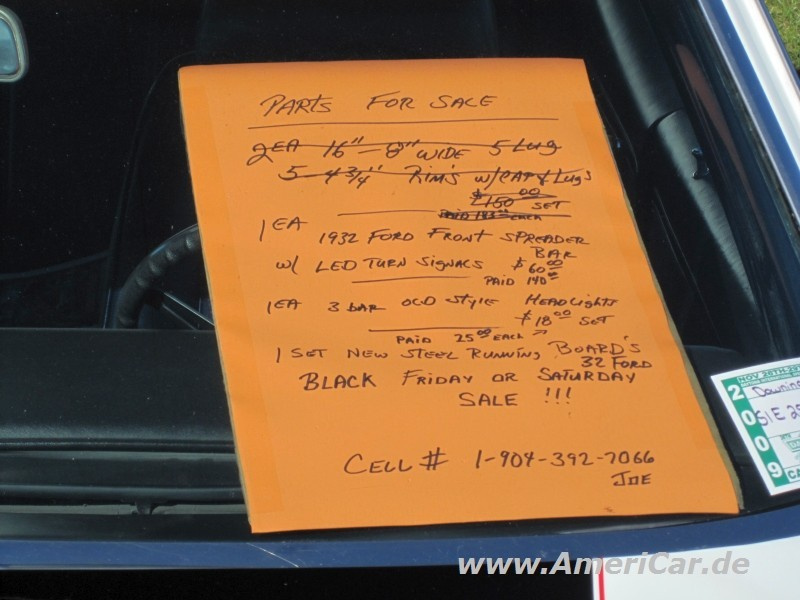 PARTS FOR SALE
2EA 16" - 8" WIDE 5 LUG
5 4 3/4" RIM'S W/CAP & LUGS
$150.00 SET
PAID 143.00 EACH
1EA
1932 FORD FRONT SPREADER
BAR
W/ LED TURN SIGNALS $60.00
PAID 140.00
1EA 3 BAR OLD STYLE HEADLIGHTS
$18.00 SET
PAID 25.00 EACH
1 SET NEW STEEL RUNNING BOARD'S
32 FORD
BLACK FRIDAY OR SATURDAY
SALE !!!
CELL # 1-904-392-7066
JOE
NOV 28TH-29TH
2009
www.AmeriCar.de